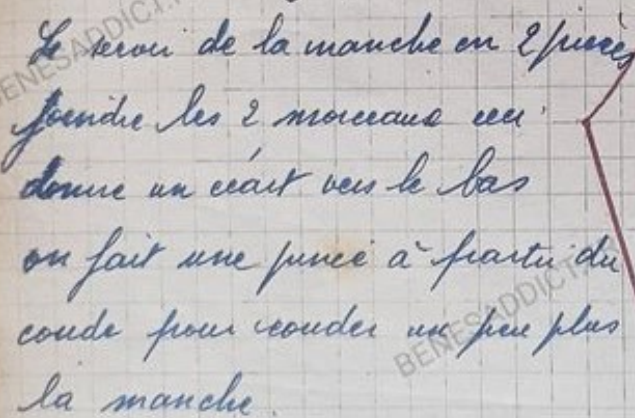 Le revoi de la manche en 2 pièces
joindre les 2 morceaux ceci
donne un écart vers le bas
on fait une pince à partir du
coude pour couder un peu plus
la manche
BENESADDICT